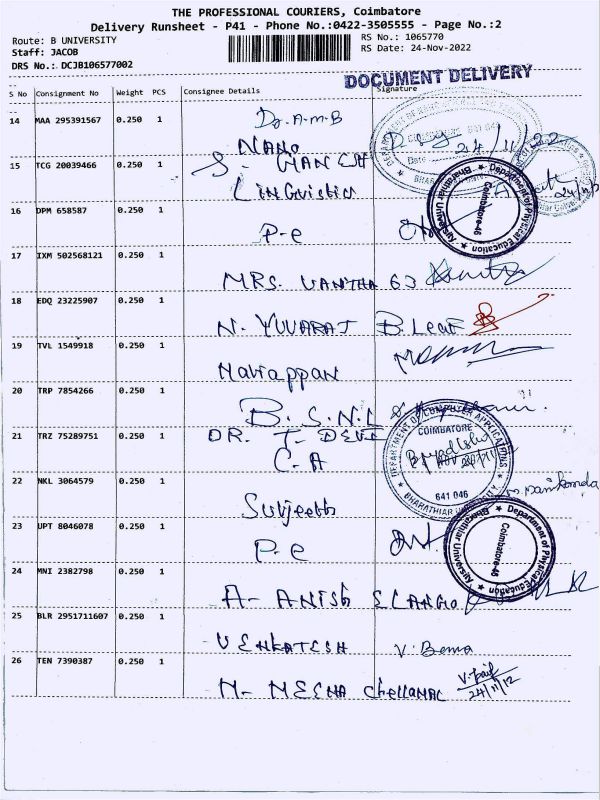 THE PROFESSIONAL COURIERS, Coimbatore
Delivery Runsheet - P41 - Phone No.:0422-3505555 - Page No.:2
Route: B UNIVERSITY
RS No.: 1065770
Staff: JACOB
RS Date: 24-Nov-2022
DRS No.: DCJB106577002
DOCUMENT DELIVERY
S No Consignment No Weight PCS Consignee Details Signature
14 MAA 295391567 0.250 1 Dr. A-m-B
NANO
24/11/22
15 TCG 20039466 0.250 1 S. GANESH
Linguistic
16 DPM 658587 0.250 1
P-e
Department of Physical Education
Bharathiar University
Coimbatore-46
17 IXM 502568121 0.250 1
MRS. VANITHA 63
18 EDQ 23225907 0.250 1
N. YUVARAJ B. Leaf
19 TVL 1549918 0.250 1
Mariappan
20 TRP 7854266 0.250 1
B.S.N.L
21 TRZ 75289751 0.250 1 DR. T. DEVI
C-A
DEPARTMENT OF COMPUTER APPLICATIONS
COIMBATORE
641 046
BHARATHIAR UNIVERSITY
22 NKL 3064579 0.250 1
Subjeeth
23 UPT 8046078 0.250 1
P-e
Department of Physical Education
Bharathiar University
Coimbatore-46
24 MNI 2382798 0.250 1
A- ANISH ELANGO
25 BLR 2951711607 0.250 1
VENKATESH V. Bema
26 TEN 7390387 0.250 1
M- MEENA Chellamal
24/11/12